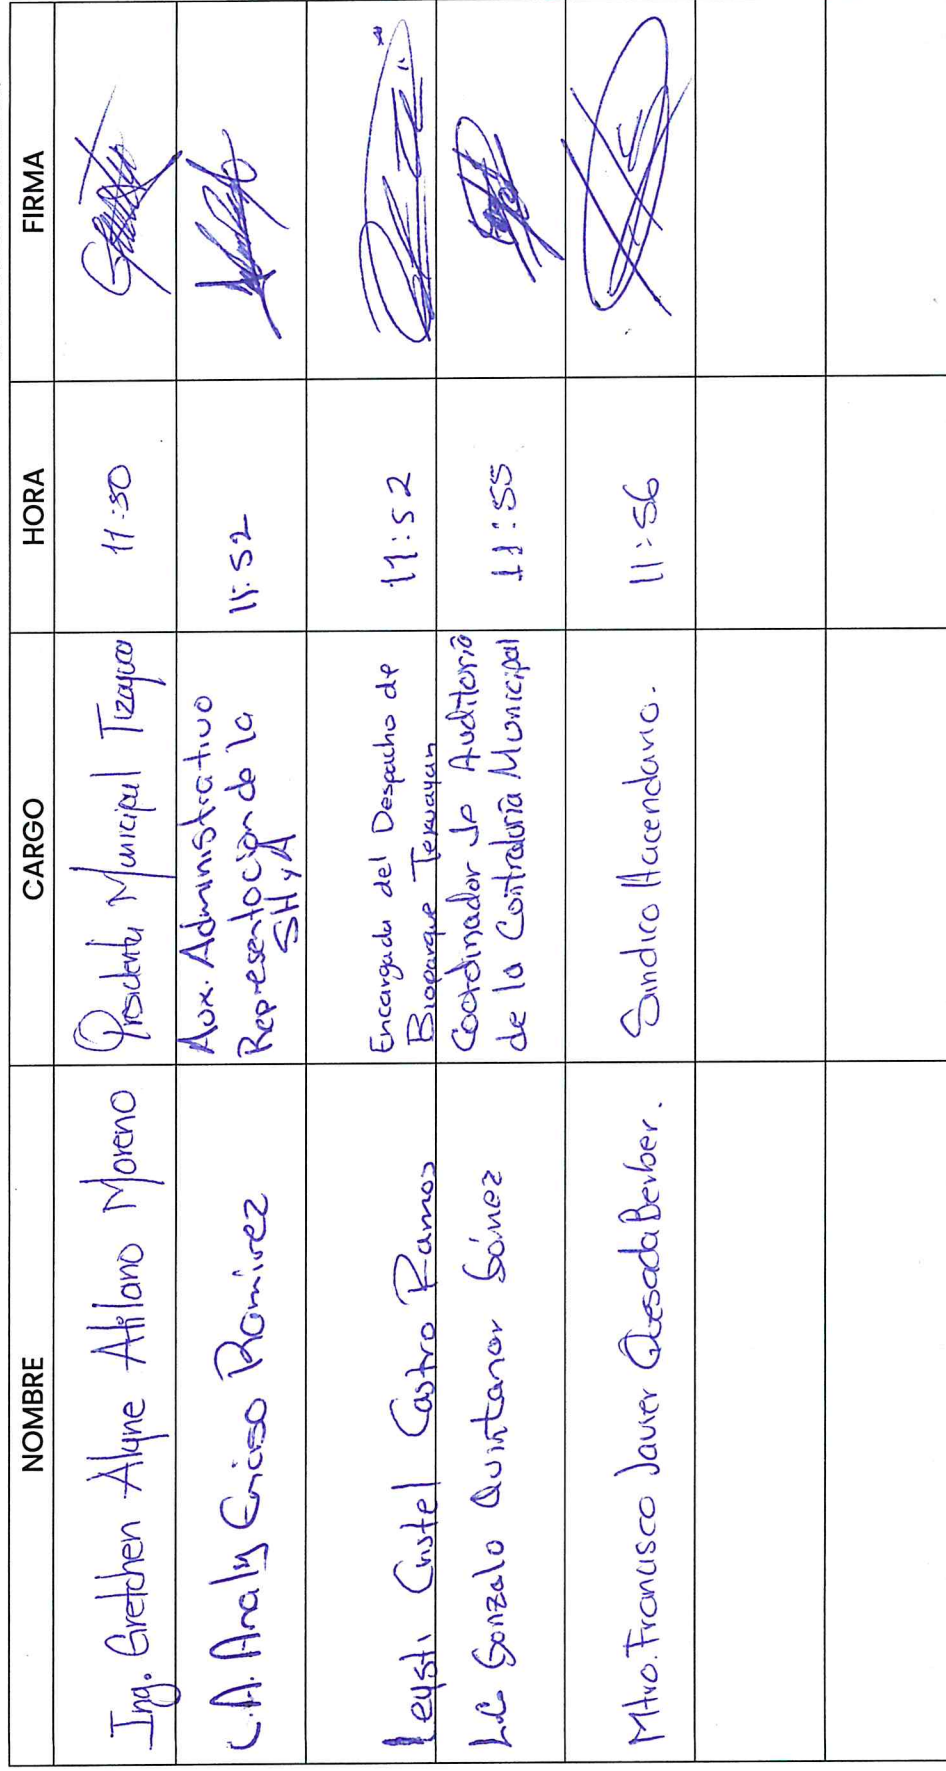 NOMBRE CARGO HORA FIRMA
Ing. Gretchen Alyne Atilano Moreno Presidenta Municipal Tizayuca 11:30
L.A. Analy Enciso Ramirez Aux. Administrativo
Representación de la
SH y A 11:52
Leysti Cristel Castro Ramos Encargada del Despacho de
Bioparque Tekuayan 11:52
L.C. Gonzalo Quintanar Gómez Coordinador de Auditoria
de la Contraloría Municipal 11:55
Mtro. Francisco Javier Quesada Berber. Sindico Hacendario. 11:56